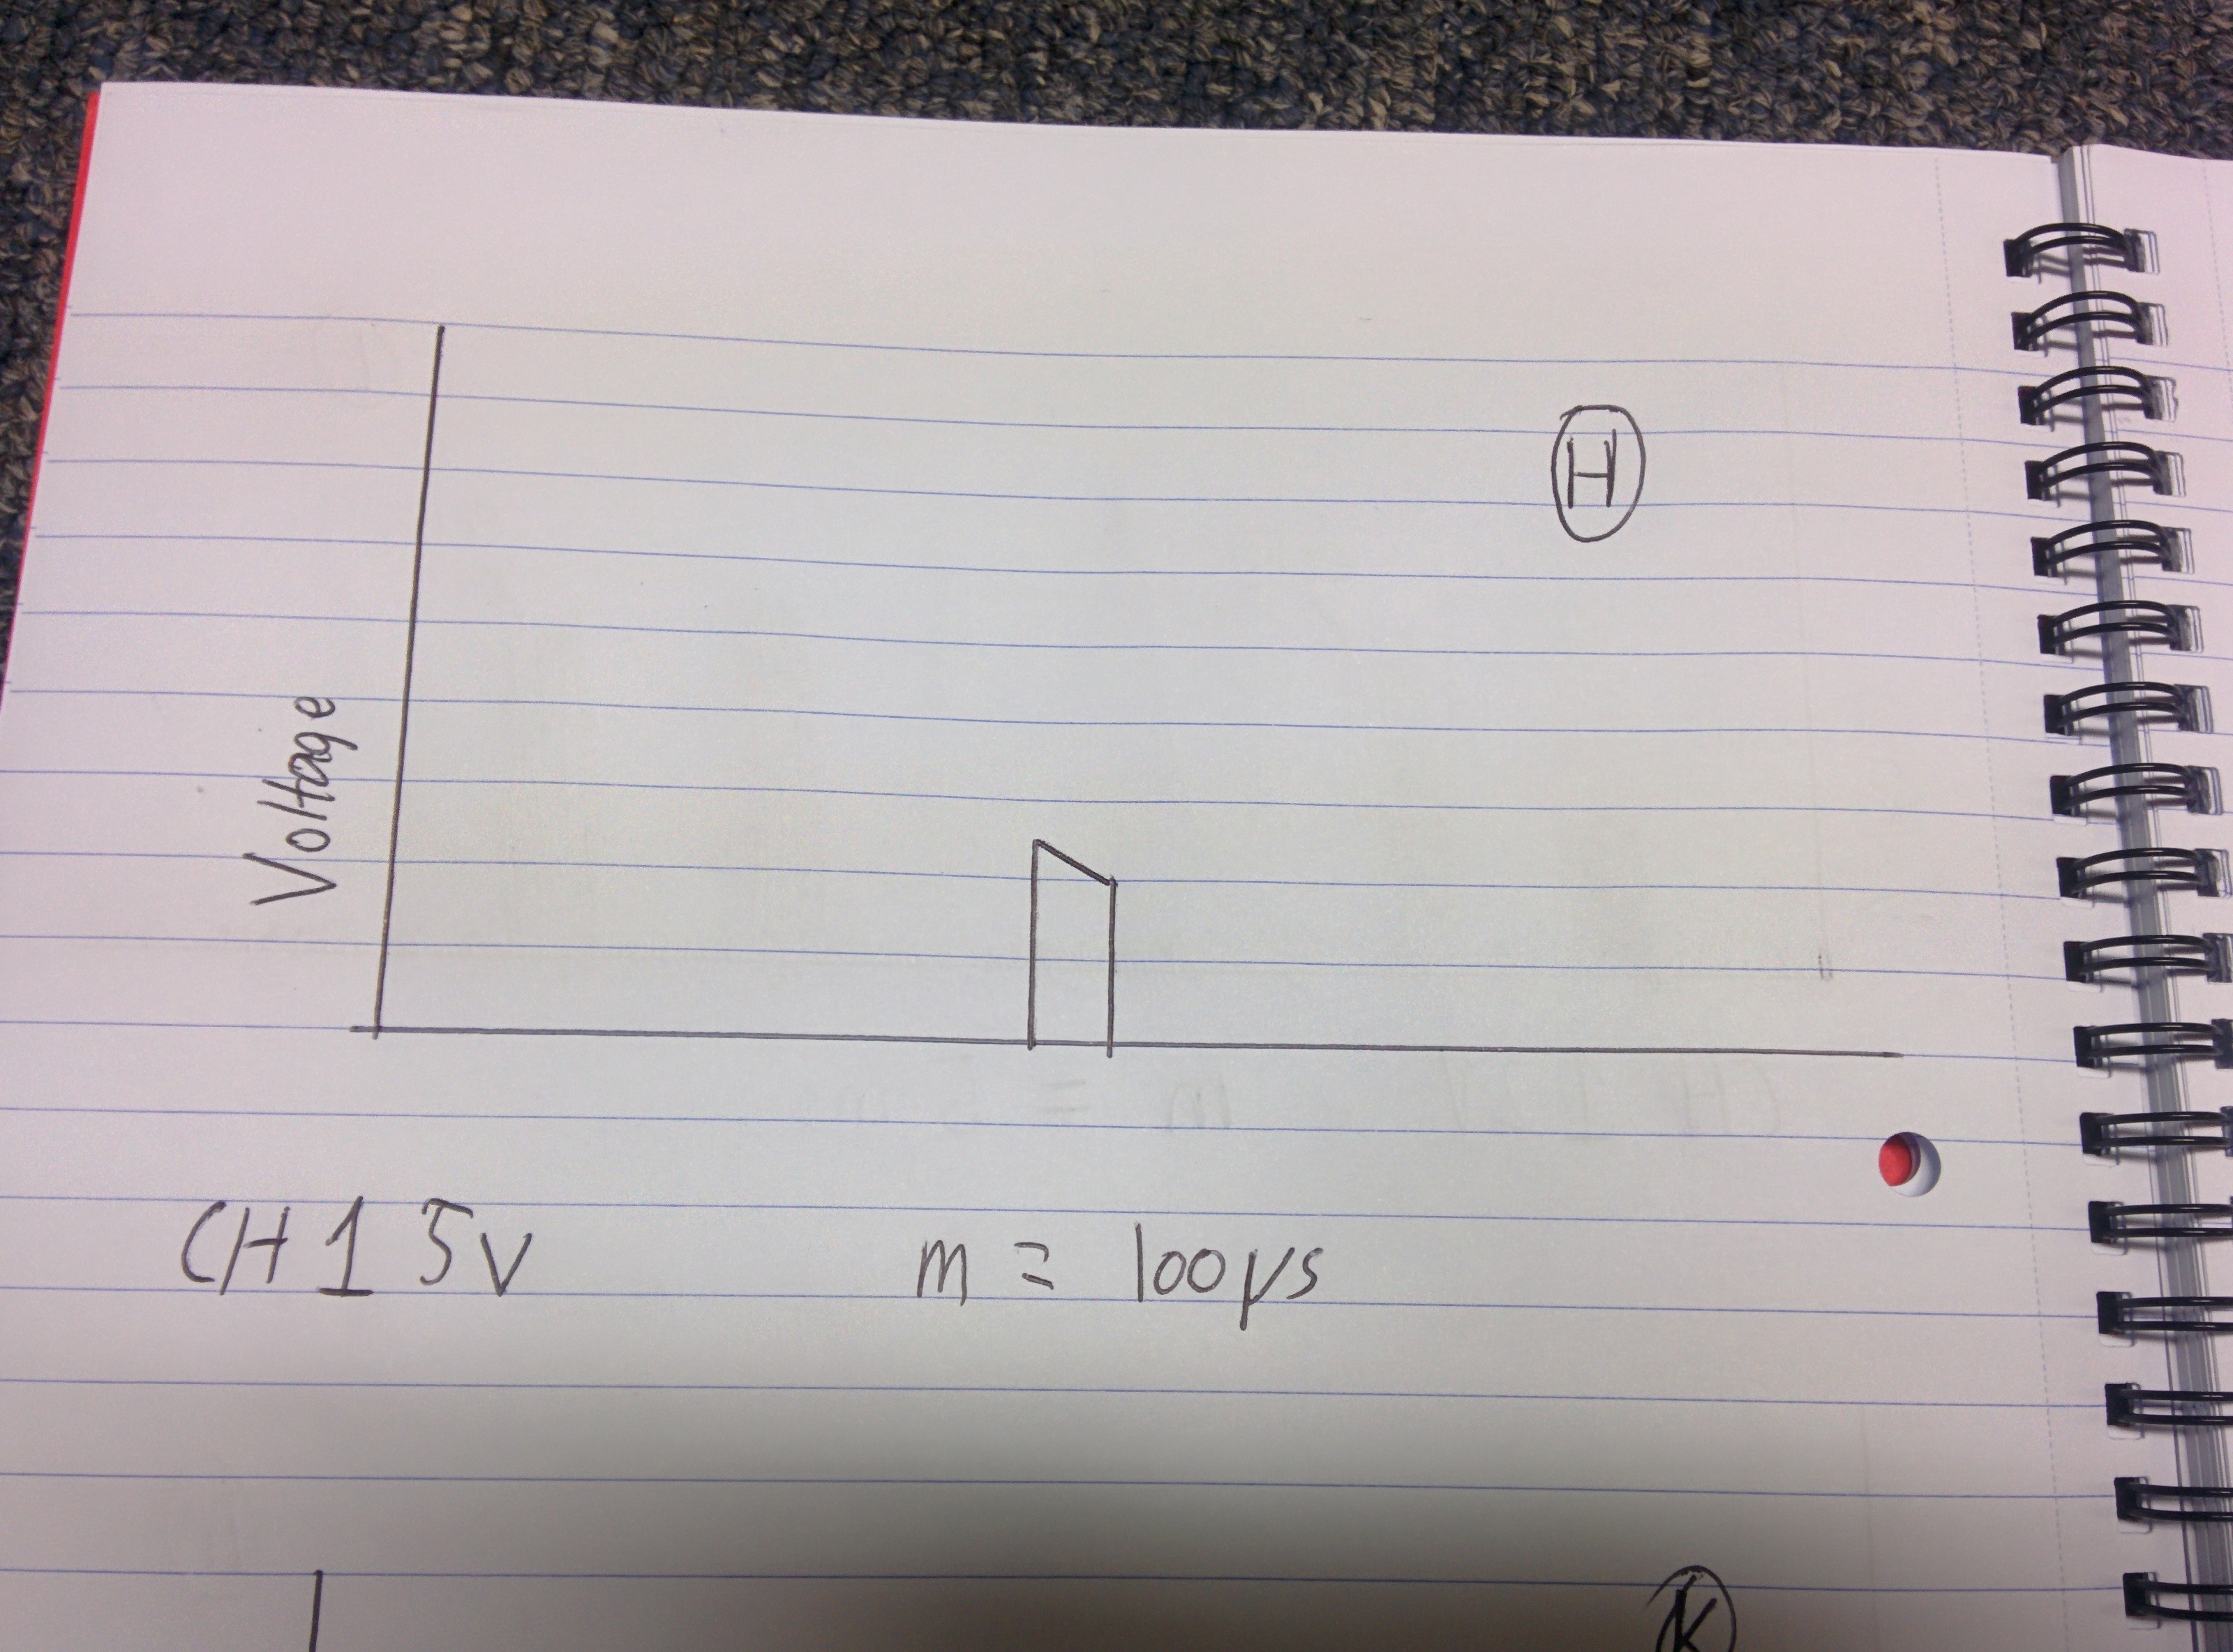 H
Voltage
CH 1 5v m = 100µs
K